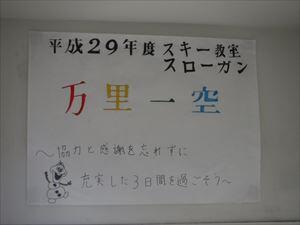 平成29年度 スキー教室
スローガン
万里一空
～協力と感謝を忘れずに
充実した3日間を過ごそう～